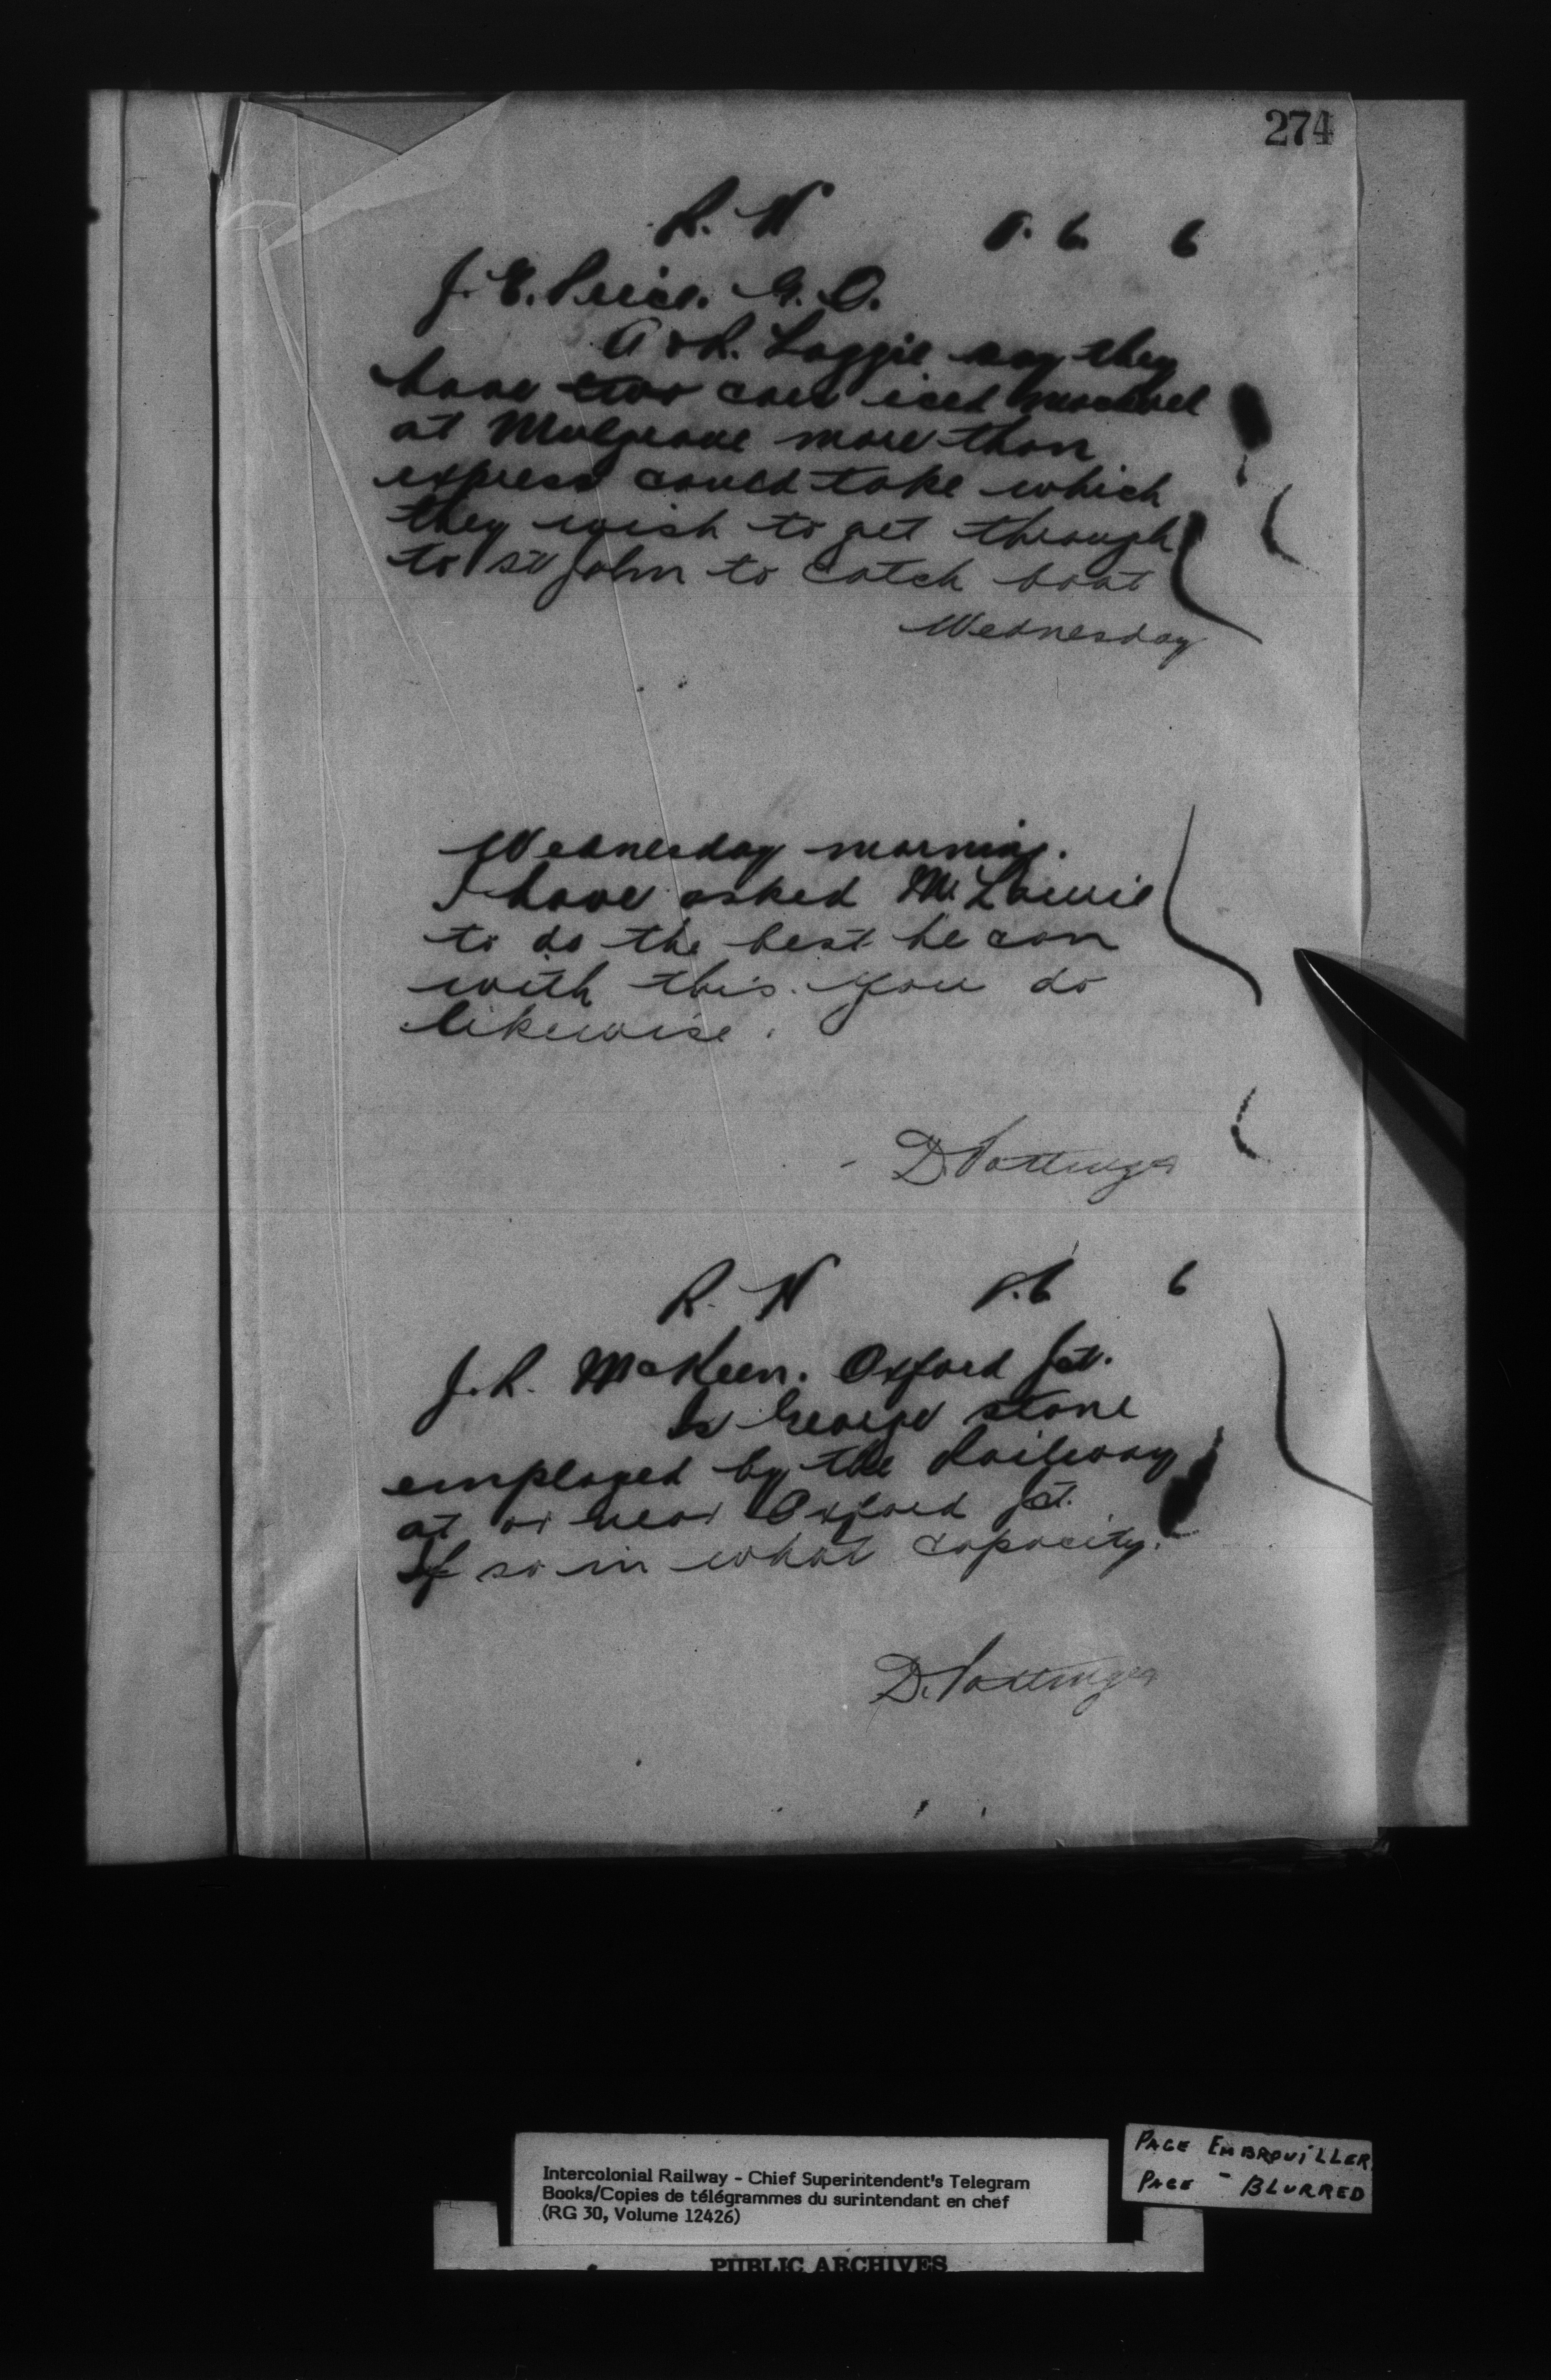 274
R. N 8. 6. 6
J. E. Price. G. O.
A & R. Loggie say they
have two cars iced mackerel
at Mulgrave more than
express could take which
they wish to get through
to St John to catch boat
Wednesday
Wednesday morning.
I have asked Mr. Lawrie
to do the best he can
with this. You do
likewise.
D. Pottinger
R. N 8. 6 6
J. R. McKeen. Oxford Jct.
Is George Stone
employed by the Railway
at or near Oxford Jct.
If so in what capacity.
D. Pottinger
PAGE EMBROUILLER
PAGE - BLURRED
Intercolonial Railway - Chief Superintendent's Telegram
Books/Copies de télégrammes du surintendant en chef
(RG 30, Volume 12426)
PUBLIC ARCHIVES